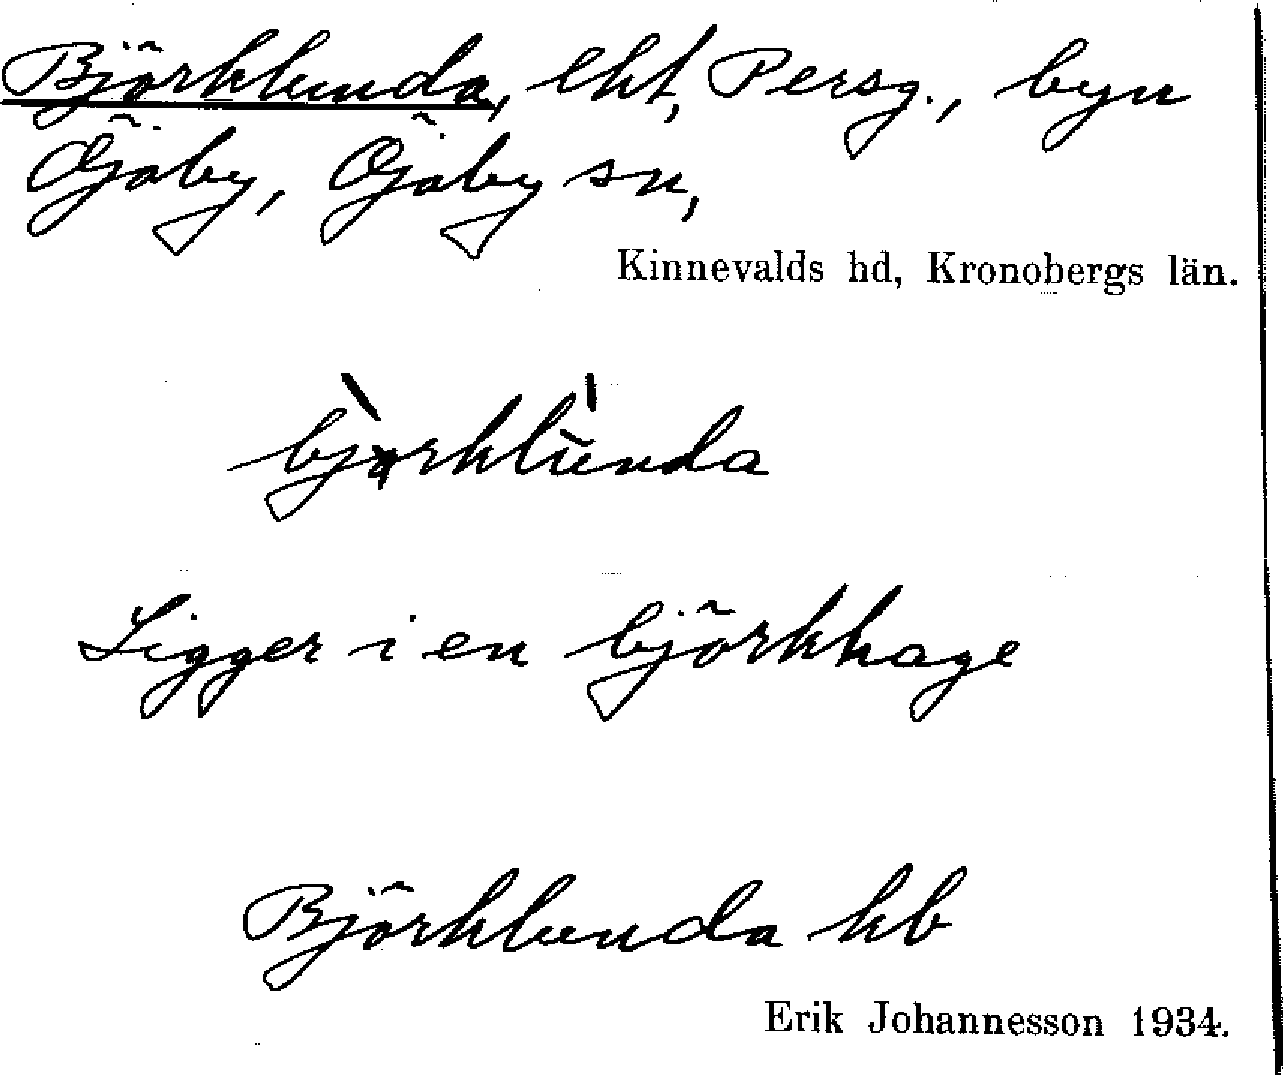 Björklunda, lht, Persg., byn
Öjaby, Öjaby sn,
Kinnevalds hd, Kronobergs län.
bjòrklùnda
Ligger i en björkhage
Björklunda hb
Erik Johannesson 1934.